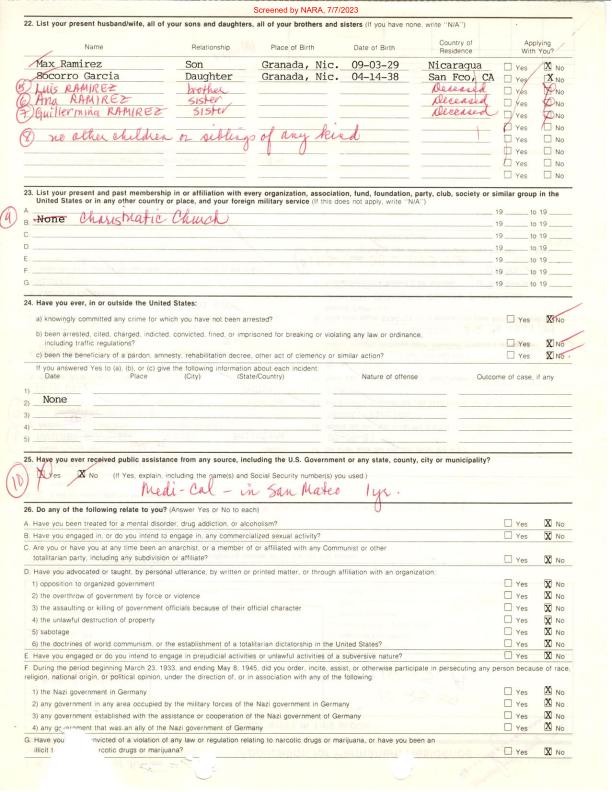 Screened by NARA, 7/7/2023
22. List your present husband/wife, all of your sons and daughters, all of your brothers and sisters (If you have none, write "N/A")
Name Relationship Place of Birth Date of Birth Country of Residence Applying With You?
Max Ramirez Son Granada, Nic. 09-03-29 Nicaragua Yes X No
Socorro Garcia Daughter Granada, Nic. 04-14-38 San Fco, CA Yes X No
5 Luis RAMIREZ brother Deceased Yes No
6 Ana RAMIREZ sister Deceased Yes No
7 Guillermina RAMIREZ sister Deceased Yes No
8 no other children or siblings of any kind Yes No
Yes No
Yes No
Yes No
23. List your present and past membership in or affiliation with every organization, association, fund, foundation, party, club, society or similar group in the
United States or in any other country or place, and your foreign military service (If this does not apply, write "N/A")
A 19 to 19
9 B. None Charismatic Church 19 to 19
C. 19 to 19
D. 19 to 19
E. 19 to 19
F. 19 to 19
G. 19 to 19
24. Have you ever, in or outside the United States:
a) knowingly committed any crime for which you have not been arrested? Yes X No
b) been arrested, cited, charged, indicted, convicted, fined, or imprisoned for breaking or violating any law or ordinance,
including traffic regulations? Yes X No
c) been the beneficiary of a pardon, amnesty, rehabilitation decree, other act of clemency or similar action? Yes X No
If you answered Yes to (a), (b), or (c) give the following information about each incident:
Date Place (City) (State/Country) Nature of offense Outcome of case, if any
1)
2) None
3)
4)
5)
25. Have you ever received public assistance from any source, including the U.S. Government or any state, county, city or municipality?
10 X Yes X No (If Yes, explain, including the name(s) and Social Security number(s) you used.)
Medi-Cal - in San Mateo 1yr.
26. Do any of the following relate to you? (Answer Yes or No to each)
A. Have you been treated for a mental disorder, drug addiction, or alcoholism? Yes X No
B. Have you engaged in, or do you intend to engage in, any commercialized sexual activity? Yes X No
C. Are you or have you at any time been an anarchist, or a member of or affiliated with any Communist or other
totalitarian party, including any subdivision or affiliate? Yes X No
D. Have you advocated or taught, by personal utterance, by written or printed matter, or through affiliation with an organization:
1) opposition to organized government Yes X No
2) the overthrow of government by force or violence Yes X No
3) the assaulting or killing of government officials because of their official character Yes X No
4) the unlawful destruction of property Yes X No
5) sabotage Yes X No
6) the doctrines of world communism, or the establishment of a totalitarian dictatorship in the United States? Yes X No
E. Have you engaged or do you intend to engage in prejudicial activities or unlawful activities of a subversive nature? Yes X No
F. During the period beginning March 23, 1933, and ending May 8, 1945, did you order, incite, assist, or otherwise participate in persecuting any person because of race,
religion, national origin, or political opinion, under the direction of, or in association with any of the following:
1) the Nazi government in Germany Yes X No
2) any government in any area occupied by the military forces of the Nazi government in Germany Yes X No
3) any government established with the assistance or cooperation of the Nazi government of Germany Yes X No
4) any government that was an ally of the Nazi government of Germany Yes X No
G. Have you convicted of a violation of any law or regulation relating to narcotic drugs or marijuana, or have you been an
illicit rcotic drugs or marijuana? Yes X No